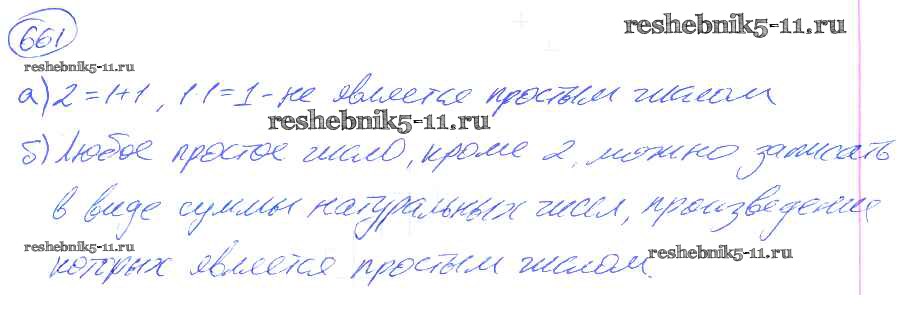 661
reshebnik5-11.ru
reshebnik5-11.ru
а) 2 = 1+1, 1·1=1 - не является простым числом
reshebnik5-11.ru
б) Любое простое число, кроме 2, можно записать
в виде суммы натуральных чисел, произведение
reshebnik5-11.ru
которых является простым числом.
reshebnik5-11.ru